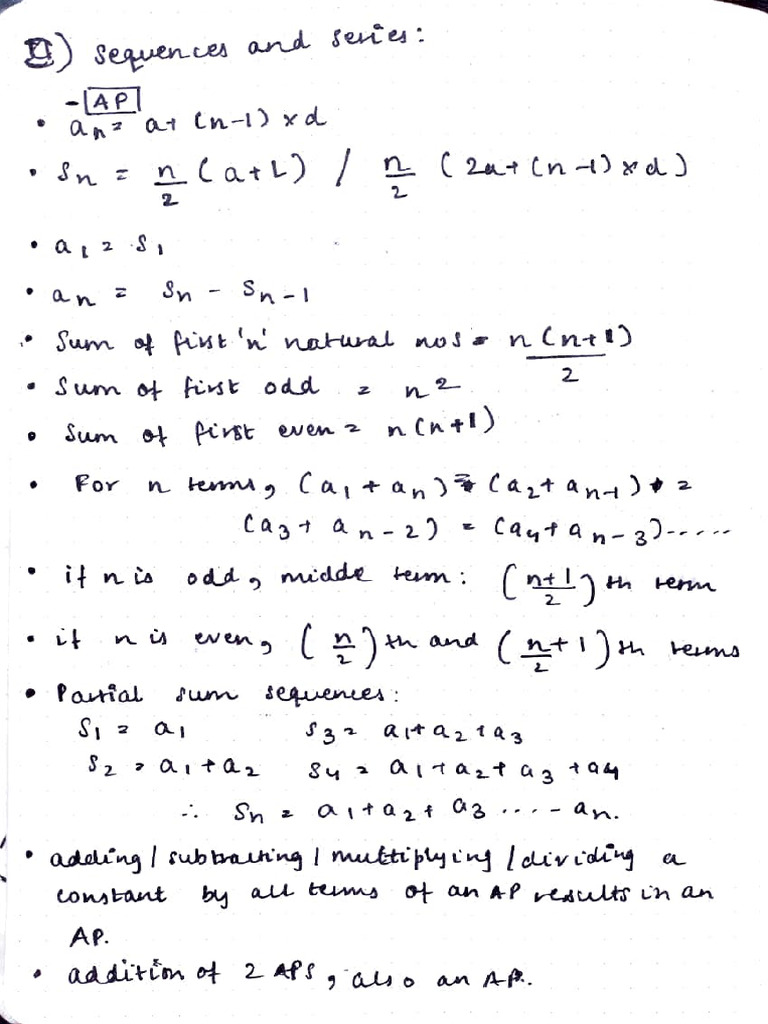 II) sequences and series:
- AP
• an = a+ (n-1) x d
• Sn = n/2 (a+L) / n/2 (2a+(n-1) x d)
• a1 = S1
• an = Sn - Sn-1
• Sum of first 'n' natural nos = n(n+1)/2
• Sum of first odd = n2
• Sum of first even = n(n+1)
• For n terms, (a1 + an) = (a2 + an-1) =
(a3 + an-2) = (a4 + an-3).....
• if n is odd, middle term: (n+1/2) th term
• if n is even, (n/2) th and (n/2 + 1) th terms
• Partial sum sequences:
S1 = a1 S3 = a1+a2+a3
S2 = a1+a2 S4 = a1+a2+a3+a4
∴ Sn = a1+a2+a3 ....- an.
• adding / subtracting / multiplying / dividing a
constant by all terms of an AP results in an
AP.
• addition of 2 APs, also an AP.